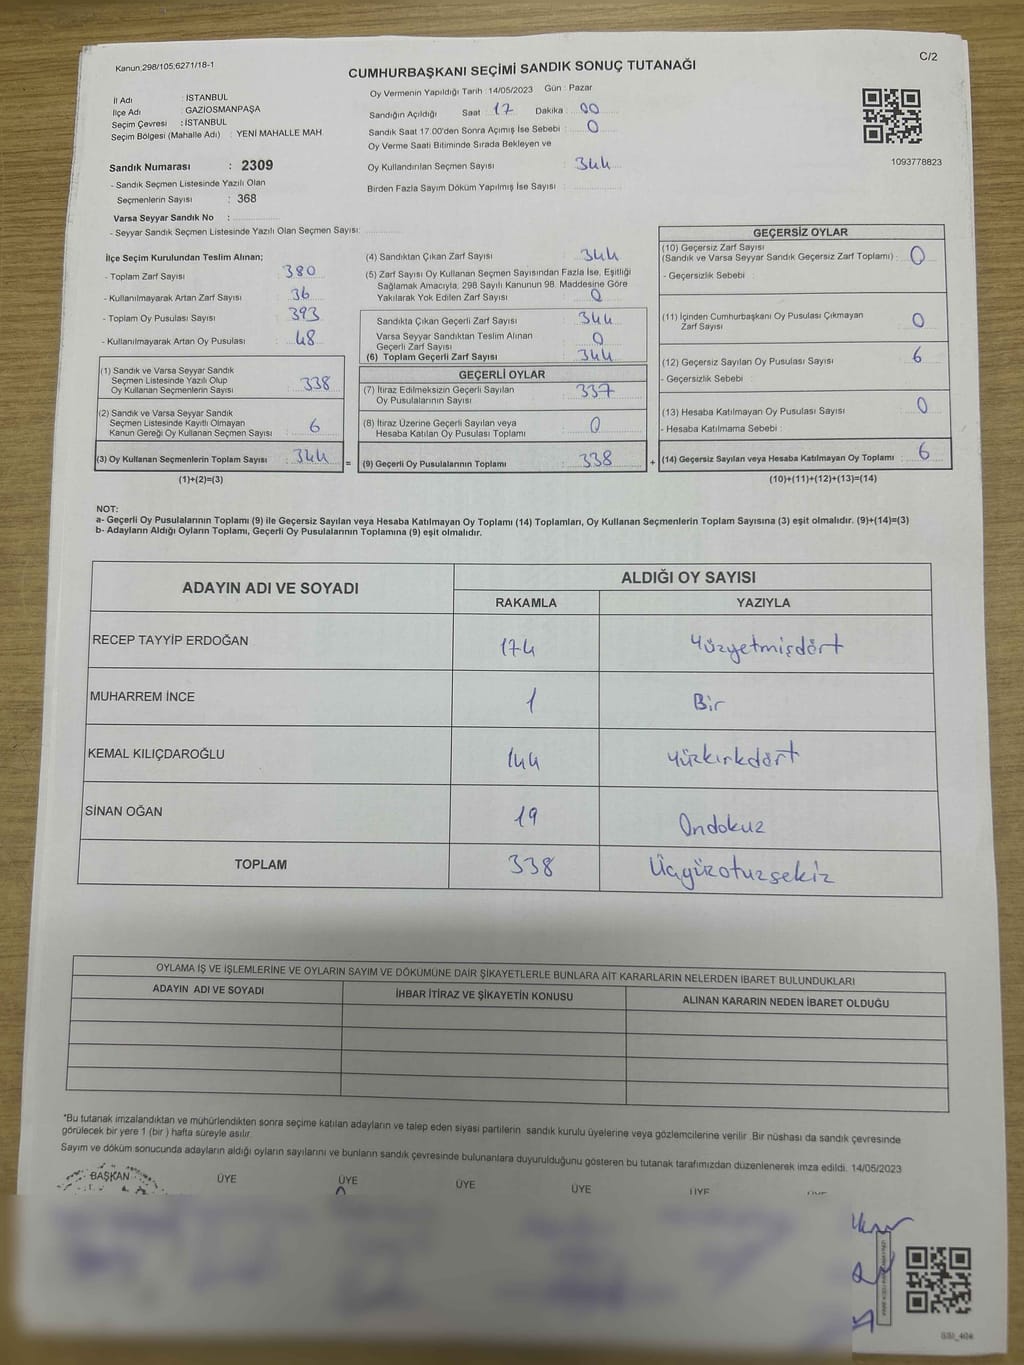 Kanun 298/105,6271/18-1
C/2
CUMHURBAŞKANI SEÇİMİ SANDIK SONUÇ TUTANAĞI
İl Adı : İSTANBUL
İlçe Adı : GAZİOSMANPAŞA
Seçim Çevresi : İSTANBUL
Seçim Bölgesi (Mahalle Adı) : YENİ MAHALLE MAH.
Sandık Numarası : 2309
- Sandık Seçmen Listesinde Yazılı Olan
Seçmenlerin Sayısı : 368
Varsa Seyyar Sandık No :
- Seyyar Sandık Seçmen Listesinde Yazılı Olan Seçmen Sayısı:
Oy Vermenin Yapıldığı Tarih : 14/05/2023 Gün : Pazar
Sandığın Açıldığı Saat : 17 Dakika : 00
Sandık Saat 17.00'den Sonra Açımış İse Sebebi : 0
Oy Verme Saati Bitiminde Sırada Bekleyen ve
Oy Kullandırılan Seçmen Sayısı : 344
Birden Fazla Sayım Döküm Yapılmış İse Sayısı :
1093778823
İlçe Seçim Kurulundan Teslim Alınan;
- Toplam Zarf Sayısı : 380
- Kullanılmayarak Artan Zarf Sayısı : 36
- Toplam Oy Pusulası Sayısı : 393
- Kullanılmayarak Artan Oy Pusulası : 48
(1) Sandık ve Varsa Seyyar Sandık
Seçmen Listesinde Yazılı Olup
Oy Kullanan Seçmenlerin Sayısı : 338
(2) Sandık ve Varsa Seyyar Sandık
Seçmen Listesinde Kayıtlı Olmayan
Kanun Gereği Oy Kullanan Seçmen Sayısı : 6
(3) Oy Kullanan Seçmenlerin Toplam Sayısı : 344 =
(1)+(2)=(3)
(4) Sandıktan Çıkan Zarf Sayısı : 344
(5) Zarf Sayısı Oy Kullanan Seçmen Sayısından Fazla İse, Eşitliği
Sağlamak Amacıyla, 298 Sayılı Kanunun 98. Maddesine Göre
Yakılarak Yok Edilen Zarf Sayısı : 0
Sandıkta Çıkan Geçerli Zarf Sayısı : 344
Varsa Seyyar Sandıktan Teslim Alınan
Geçerli Zarf Sayısı : 0
(6) Toplam Geçerli Zarf Sayısı : 344
GEÇERLİ OYLAR
(7) İtiraz Edilmeksizin Geçerli Sayılan
Oy Pusulalarının Sayısı : 337
(8) İtiraz Üzerine Geçerli Sayılan veya
Hesaba Katılan Oy Pusulası Toplamı : 0
(9) Geçerli Oy Pusulalarının Toplamı : 338 +
GEÇERSİZ OYLAR
(10) Geçersiz Zarf Sayısı
(Sandık ve Varsa Seyyar Sandık Geçersiz Zarf Toplamı) : 0
- Geçersizlik Sebebi :
(11) İçinden Cumhurbaşkanı Oy Pusulası Çıkmayan
Zarf Sayısı : 0
(12) Geçersiz Sayılan Oy Pusulası Sayısı : 6
- Geçersizlik Sebebi :
(13) Hesaba Katılmayan Oy Pusulası Sayısı : 0
- Hesaba Katılmama Sebebi :
(14) Geçersiz Sayılan veya Hesaba Katılmayan Oy Toplamı : 6
(10)+(11)+(12)+(13)=(14)
NOT:
a- Geçerli Oy Pusulalarının Toplamı (9) ile Geçersiz Sayılan veya Hesaba Katılmayan Oy Toplamı (14) Toplamları, Oy Kullanan Seçmenlerin Toplam Sayısına (3) eşit olmalıdır. (9)+(14)=(3)
b- Adayların Aldığı Oyların Toplamı, Geçerli Oy Pusulalarının Toplamına (9) eşit olmalıdır.
ADAYIN ADI VE SOYADI ALDIĞI OY SAYISI
RAKAMLA YAZIYLA
RECEP TAYYİP ERDOĞAN 174 Yüzyetmişdört
MUHARREM İNCE 1 Bir
KEMAL KILIÇDAROĞLU 144 Yüzkırkdört
SİNAN OĞAN 19 Ondokuz
TOPLAM 338 Üçyüzotuzsekiz
OYLAMA İŞ VE İŞLEMLERİNE VE OYLARIN SAYIM VE DÖKÜMÜNE DAİR ŞİKAYETLERLE BUNLARA AİT KARARLARIN NELERDEN İBARET BULUNDUKLARI
ADAYIN ADI VE SOYADI İHBAR İTİRAZ VE ŞİKAYETİN KONUSU ALINAN KARARIN NEDEN İBARET OLDUĞU
*Bu tutanak imzalandıktan ve mühürlendikten sonra seçime katılan adayların ve talep eden siyasi partilerin sandık kurulu üyelerine veya gözlemcilerine verilir. Bir nüshası da sandık çevresinde
görülecek bir yere 1 (bir ) hafta süreyle asılır.
Sayım ve döküm sonucunda adayların aldığı oyların sayılarını ve bunların sandık çevresinde bulunanlara duyurulduğunu gösteren bu tutanak tarafımızdan düzenlenerek imza edildi. 14/05/2023
BAŞKAN ÜYE ÜYE ÜYE ÜYE ÜYE ÜYE